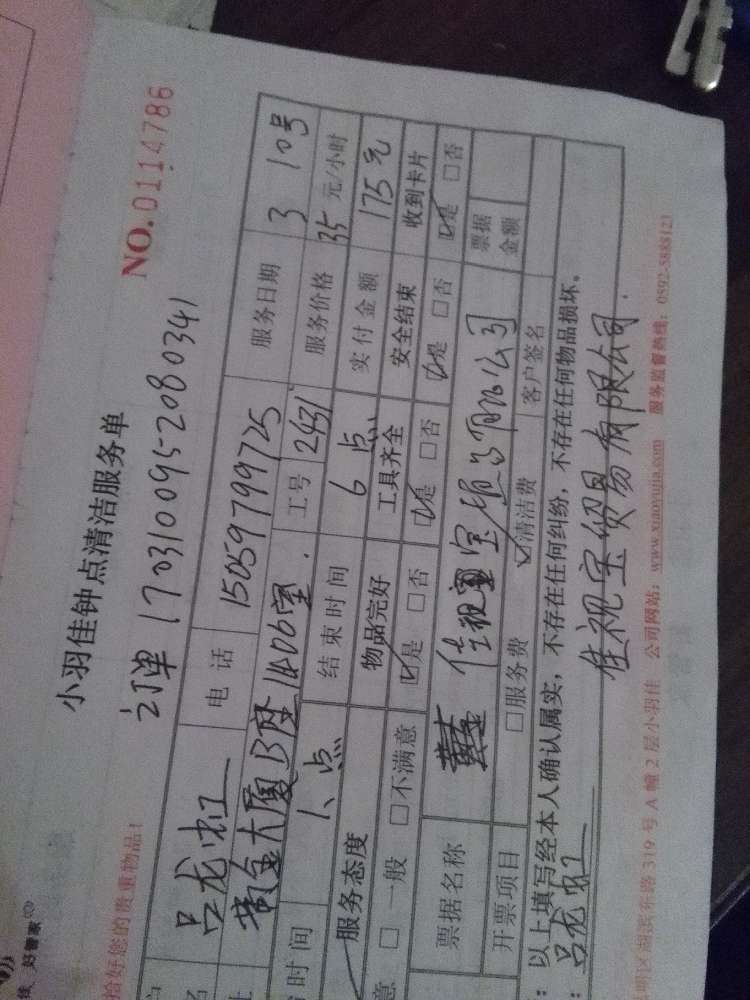 小羽佳钟点清洁服务单
NO.0114786
订单 1703100952080341
拾好您的贵重物品!
好管家
吕龙虹 电话 15059799725 服务日期 3 10号
黄金大厦B座1406室. 工号 2431 服务价格 35元/小时
时间 1.点 结束时间 6点 实付金额 175元
服务态度 物品完好 工具齐全 安全结束 收到卡片
意 □一般 □不满意 ☑是 □否 ☑是 □否 ☑是 □否 ☑是 □否
票据名称 佳视宝贸易有限公司 票据金额
开票项目 □服务费 ☑清洁费 客户签名
:以上填写经本人确认属实,不存在任何纠纷,不存在任何物品损坏。
:吕龙虹 佳视宝贸易有限公司.
明区湖滨东路 319 号 A 幢 2 层小羽佳 公司网站:www.xiaoyujia.com 服务监督热线:0592-5888123